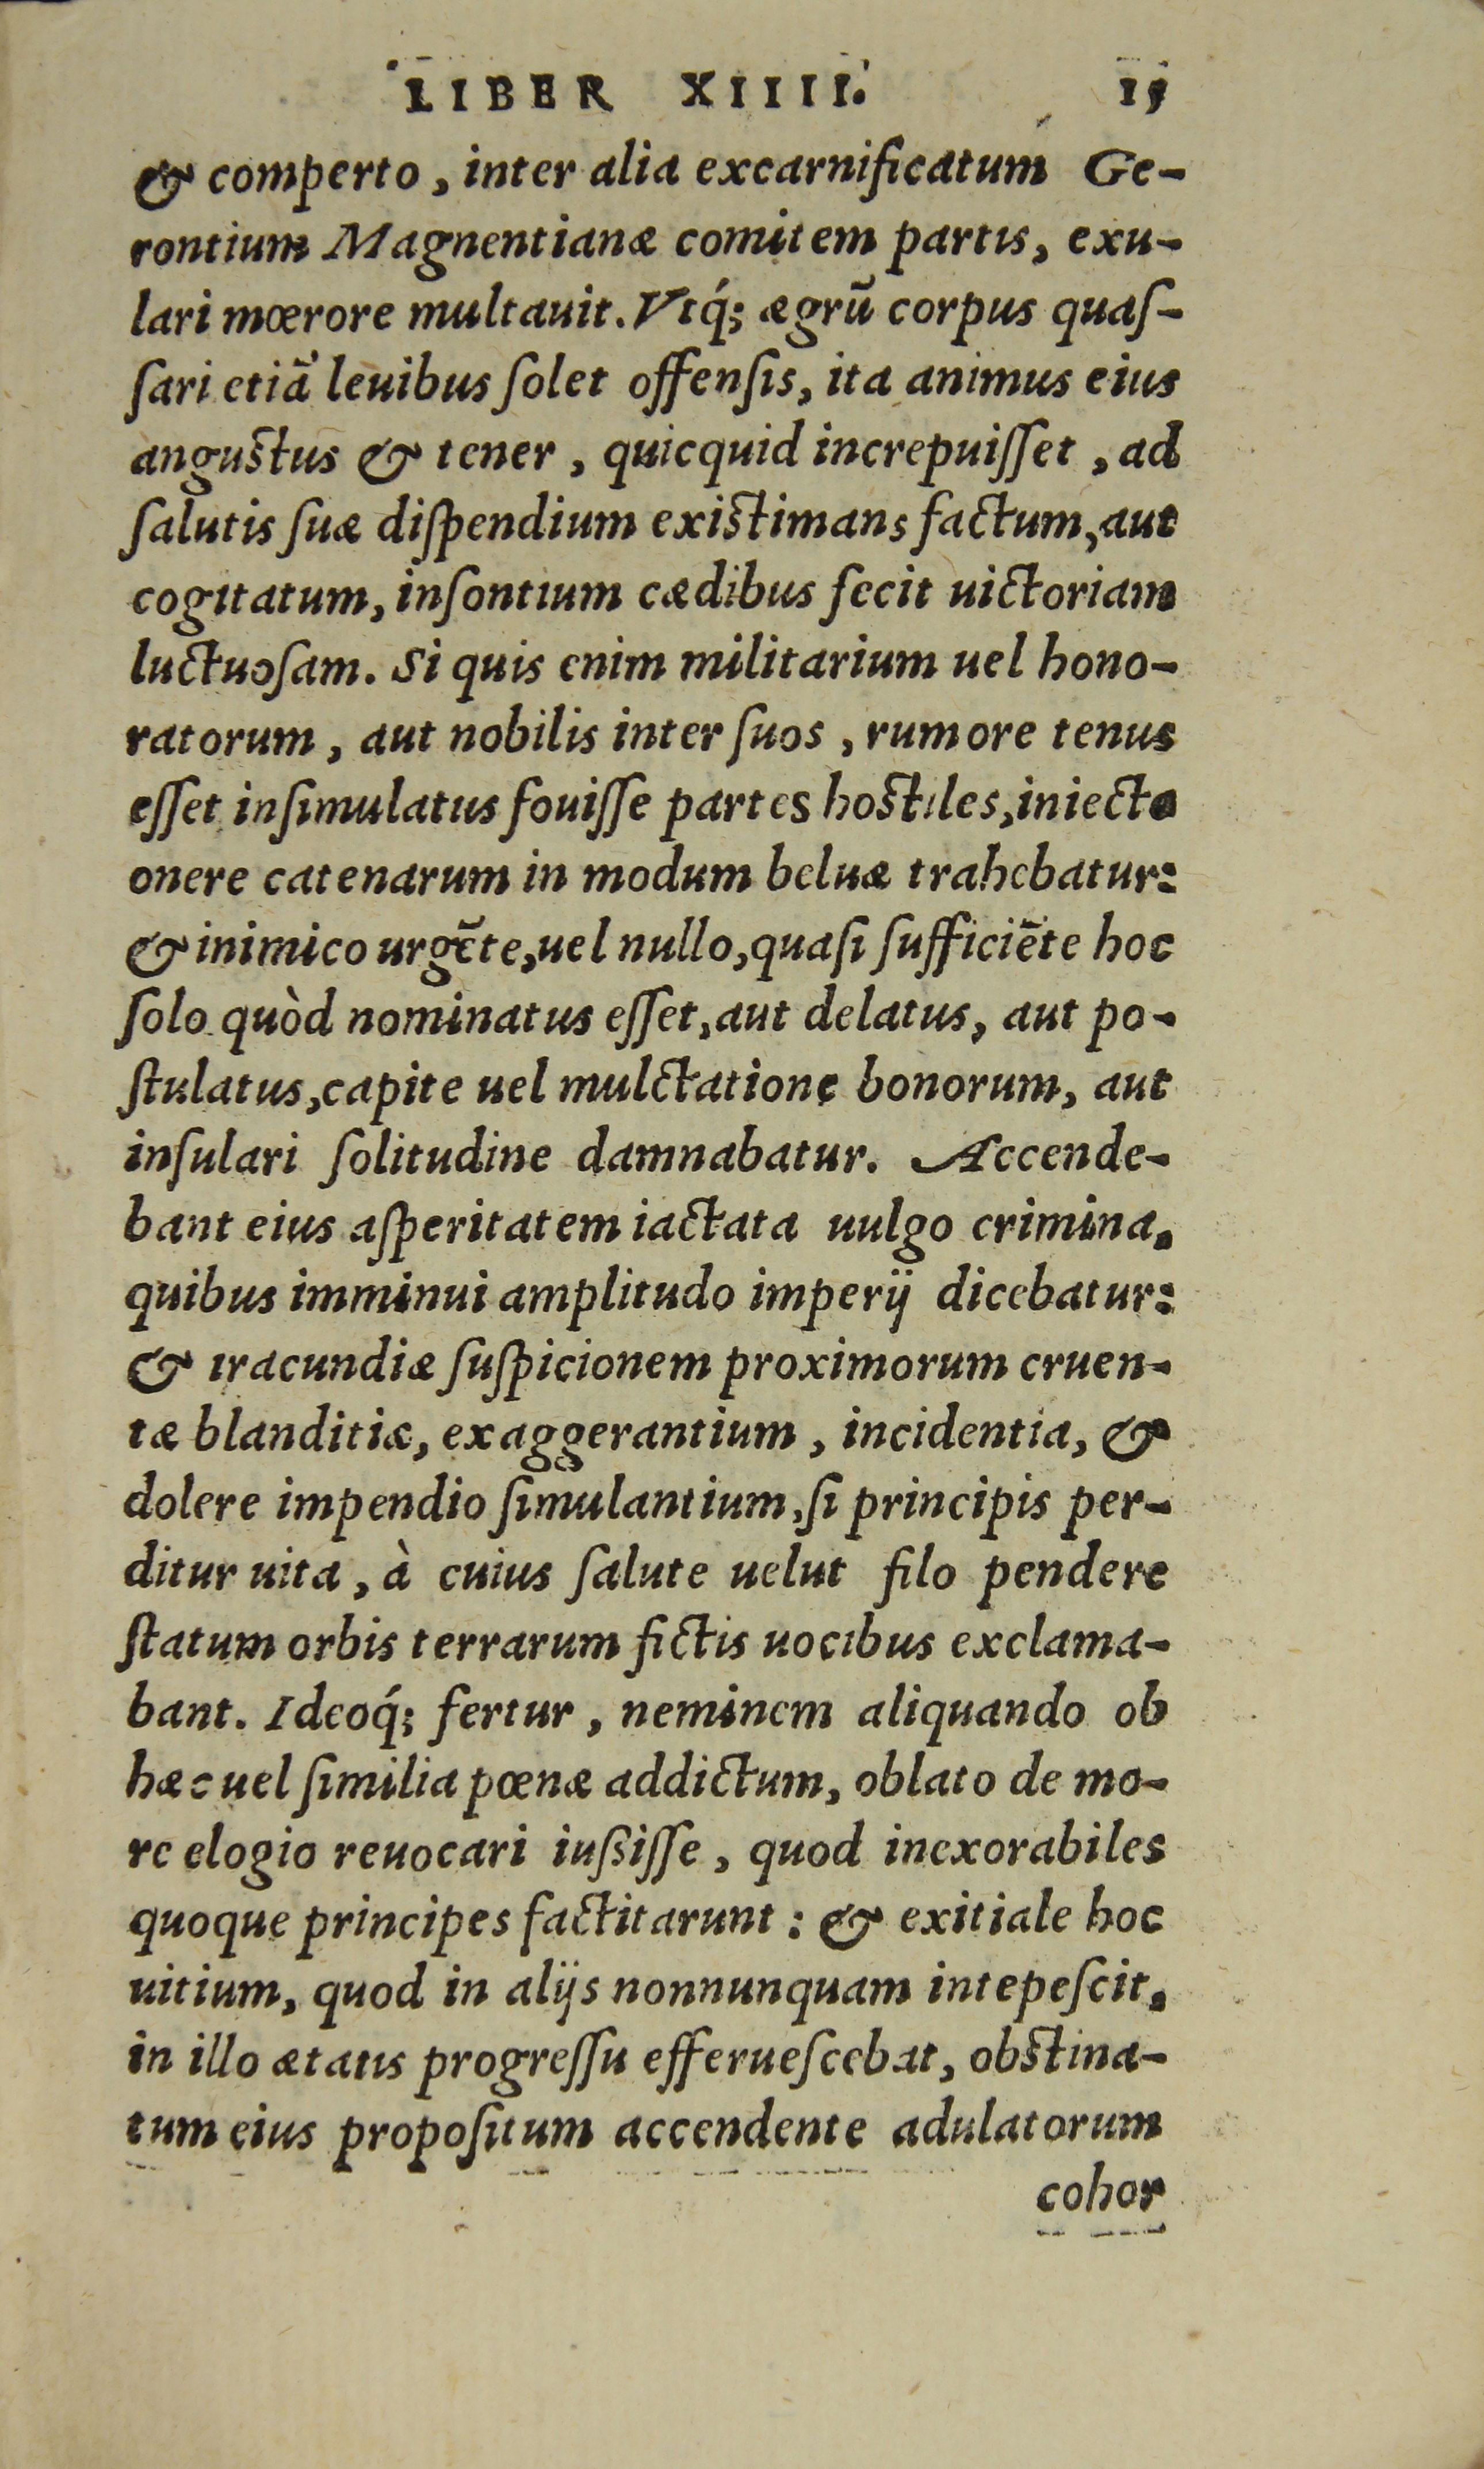 LIBER XIIII. 15
& comperto, inter alia excarnificatum Ge-
rontium Magnentianæ comitem partis, exu-
lari mœrore multauit. Vtq́; ægrũ corpus quaſ-
ſari etiã leuibus ſolet offenſis, ita animus eius
anguſtus & tener, quicquid increpuiſſet, ad
ſalutis ſuæ diſpendium exiſtimans factum, aut
cogitatum, inſontium cædibus fecit uictoriam
luctuoſam. Si quis enim militarium uel hono-
ratorum, aut nobilis inter ſuos, rumore tenus
eſſet inſimulatus fouiſſe partes hoſtiles, iniecto
onere catenarum in modum beluæ trahebatur:
& inimico urgẽte, uel nullo, quaſi ſufficiẽte hoc
ſolo quòd nominatus eſſet, aut delatus, aut po-
ſtulatus, capite uel mulctatione bonorum, aut
inſulari ſolitudine damnabatur. Accende-
bant eius aſperitatem iactata uulgo crimina,
quibus imminui amplitudo imperij dicebatur:
& iracundiæ ſuſpicionem proximorum cruen-
tæ blanditiæ, exaggerantium, incidentia, &
dolere impendio ſimulantium, ſi principis per-
ditur uita, à cuius ſalute uelut filo pendere
ſtatum orbis terrarum fictis uocibus exclama-
bant. Ideoq́; fertur, neminem aliquando ob
hæc uel ſimilia pœnæ addictum, oblato de mo-
re elogio reuocari iuſsiſſe, quod inexorabiles
quoque principes factitarunt: & exitiale hoc
uitium, quod in alijs nonnunquam intepeſcit,
in illo ætatis progreſſu efferueſcebat, obſtina-
tum eius propoſitum accendente adulatorum
cohor